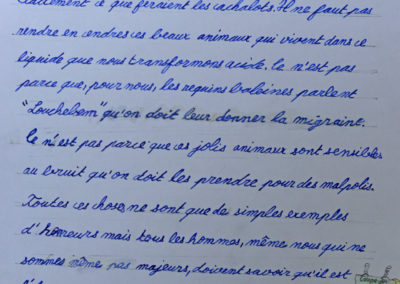 clairement ce que feraient les cachalots. Il ne faut pas
rendre en cendres ces beaux animaux qui vivent dans ce
liquide que nous transformons acide. Ce n'est pas
parce que, pour nous, les requins baleines parlent
"Louchebem" qu'on doit leur donner la migraine.
Ce n'est pas parce que ces jolis animaux sont sensibles
au bruit qu'on doit les prendre pour des malpolis.
Toutes ces chose, ne sont que de simples exemples
d'horreurs mais tous les hommes, mêmes nous qui ne
sommes même pas majeurs, doivent savoir qu'il est